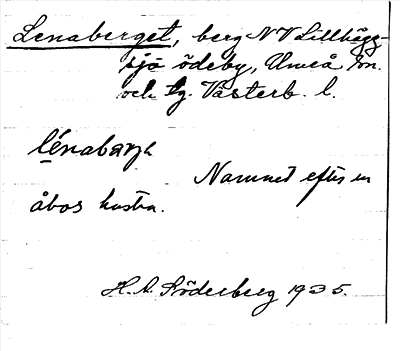 Lenaberget, berg NV Lillhägg-
sjö ödeby, Umeå sn.
och tg. Västerb. l.
lénabærjə
Namnet efter en
åbos hustru.
H. A. Söderberg 1935.